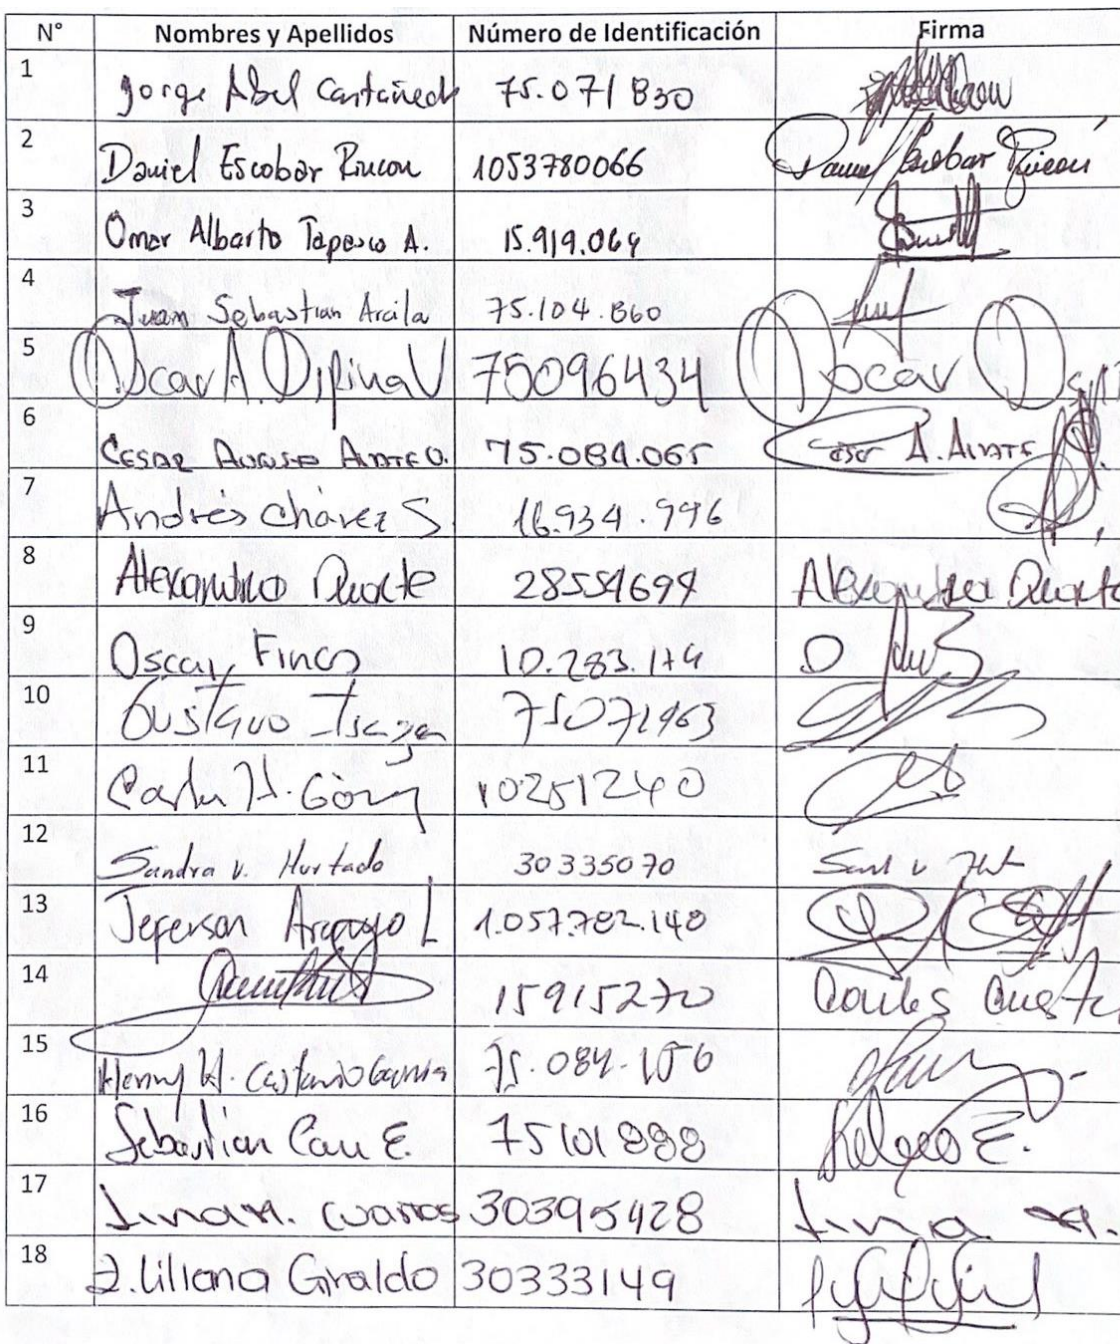 N° Nombres y Apellidos Número de Identificación Firma
1 Jorge Abel Castañeda 75.071830
2 Daniel Escobar Rincon 1053780066 Daniel Escobar Rincon
3 Omar Alberto Tapasco A. 15.919.064
4 Juan Sebastian Arcila 75.104.860
5 Oscar A. Ospina V 75096434 Oscar Ospi
6 CESAR AUGUSTO ALZATE O. 75.084.065 Cesar A. ALZATE
7 Andrés Chávez S. 16.934.996
8 Alexandra Duarte 28554694 Alexandra Duarte
9 Oscar 10.283.174
10 Gustavo Isaza 75071963
11 Carlos H. Gómez 10251240
12 Sandra v. Hurtado 30335070
13 Jeferson Arroyo L 1.057.782.140
14 15915270
15 Henry H. Castaño Garcia 75.084.
16 Sebastian E. 75101888
17 30395428
18 Liliana Giraldo 30333149